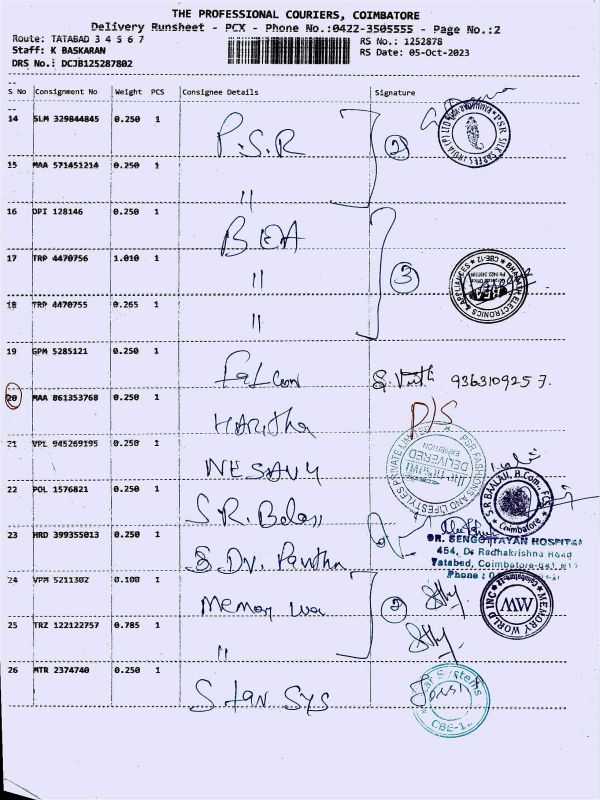 THE PROFESSIONAL COURIERS, COIMBATORE
Delivery Runsheet - PCX - Phone No.:0422-3505555 - Page No.:2
Route: TATABAD 3 4 5 6 7
RS No.: 1252878
Staff: K BASKARAN
RS Date: 05-Oct-2023
DRS No.: DCJB125287802
S No Consignment No Weight PCS Consignee Details Signature
14 SLM 329844845 0.250 1 P.S.R 2
15 MAA 571451214 0.250 1 "
16 DPI 128146 0.250 1 BEA
17 TRP 4470756 1.010 1 " 3
18 TRP 4470755 0.265 1 "
19 GPM 5285121 0.250 1 Falcon 9363109257.
20 MAA 861353768 0.250 1 Haritha D/S
21 VPL 945269195 0.250 1 NESAVU
DELIVERED
22 POL 1576821 0.250 1 S.R. Balaji
S.R BAALAJI, B.Com., FCS
Coimbatore
23 HRD 399355013 0.250 1
DR. SENGOTTAYAN HOSPITAL
454, Dr Radhakrishna Road
Tatabad, Coimbatore
Phone :
24 VPM 5211302 0.100 1 2
MEMORY WORLD INC
MW
25 TRZ 122122757 0.785 1 "
26 MTR 2374740 0.250 1 Star Sys
Star Systems
CBE-12